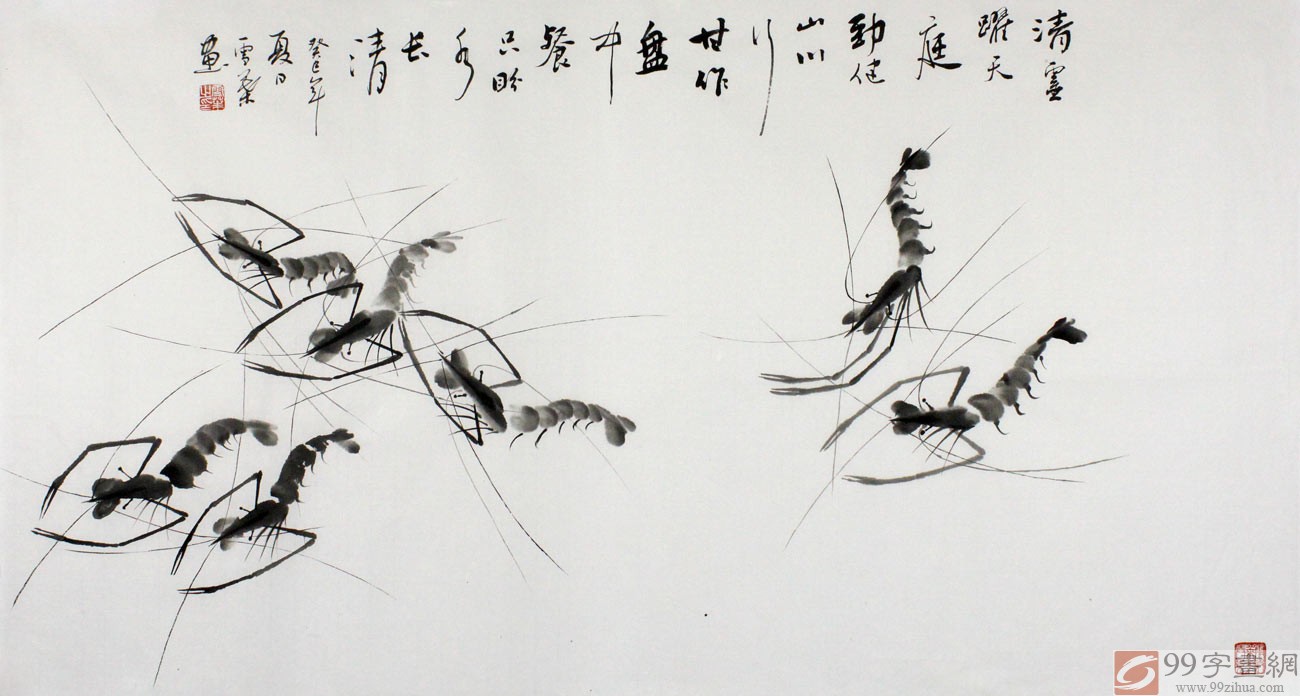 清靈
躍天
庭
勁健
山川
行
甘作
盤
中
餐
只盼
水
长
清
癸巳年
夏月
雪
畫
99字畫網
www.99zihua.com